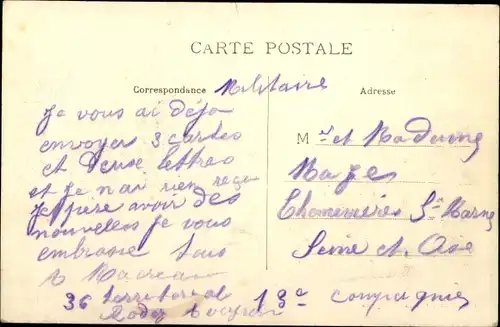 CARTE POSTALE
Correspondance Militaire
Adresse
Je vous ai déja
envoyer 3 cartes
et deux lettres
et Je n'ai rien reçu
J'espère avoir des
nouvelles Je vous
embrasse tous
36 territorial
Rodez Aveyron
Mr et Madame
Seine et Oise
13e compagnie